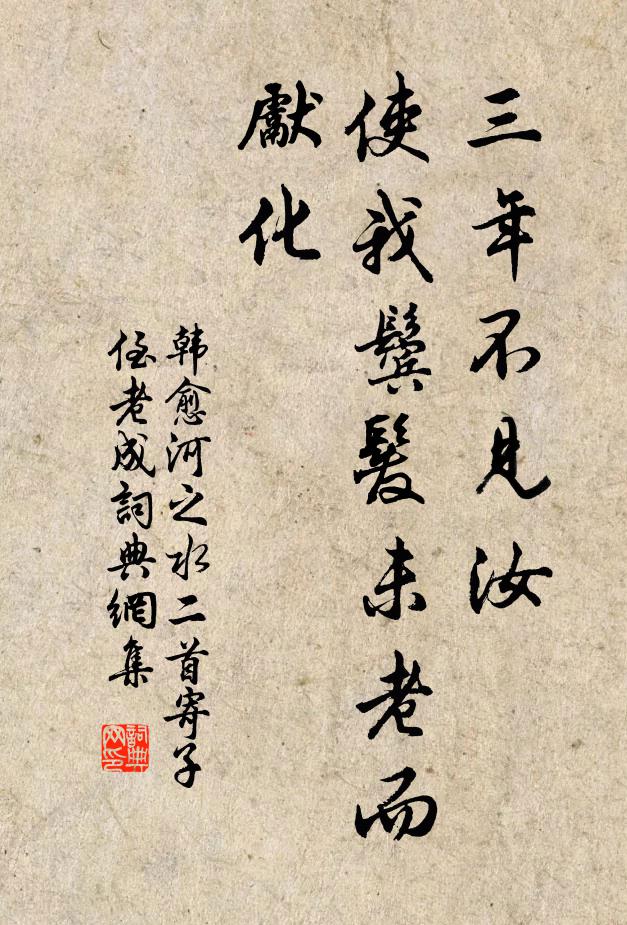 三年不見汝
使我鬢髮未老而
獻化
韩愈河之水二首寄子
侄老成詞典網集
詞典
网印